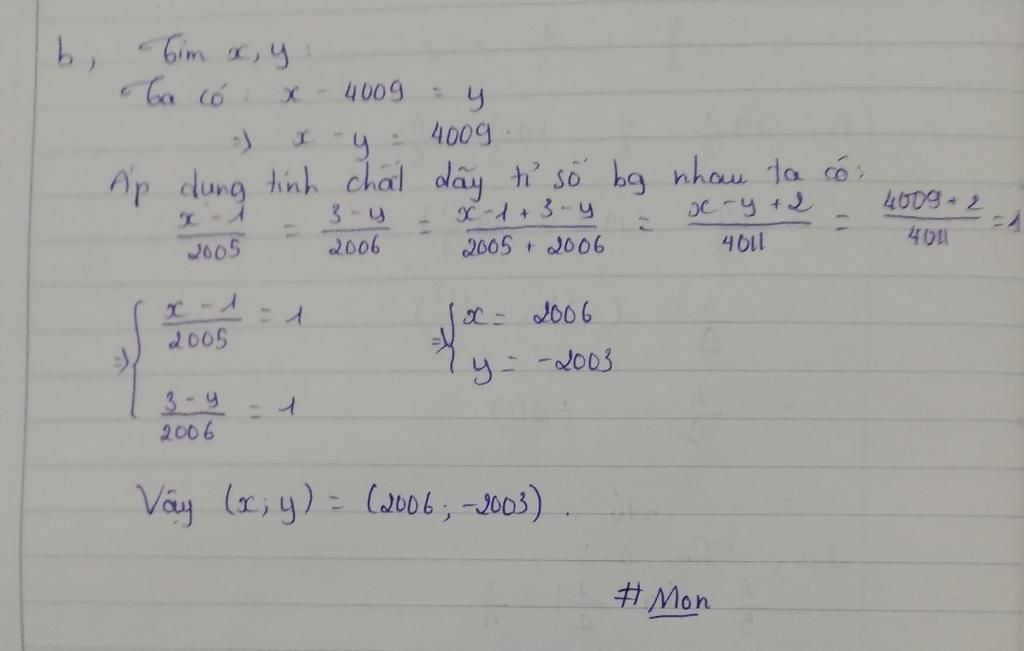 b, Tìm x, y :
Ta có : x - 4009 = y
=> x - y = 4009.
Áp dụng tính chất dãy tỉ số bg nhau ta có :
x - 1 / 2005 = 3 - y / 2006 = x - 1 + 3 - y / 2005 + 2006 = x - y + 2 / 4011 = 4009 + 2 / 4011 = 1
=> { x - 1 / 2005 = 1 => { x = 2006
y = -2003
3 - y / 2006 = 1
Vậy (x; y) = (2006; -2003).
# Mon